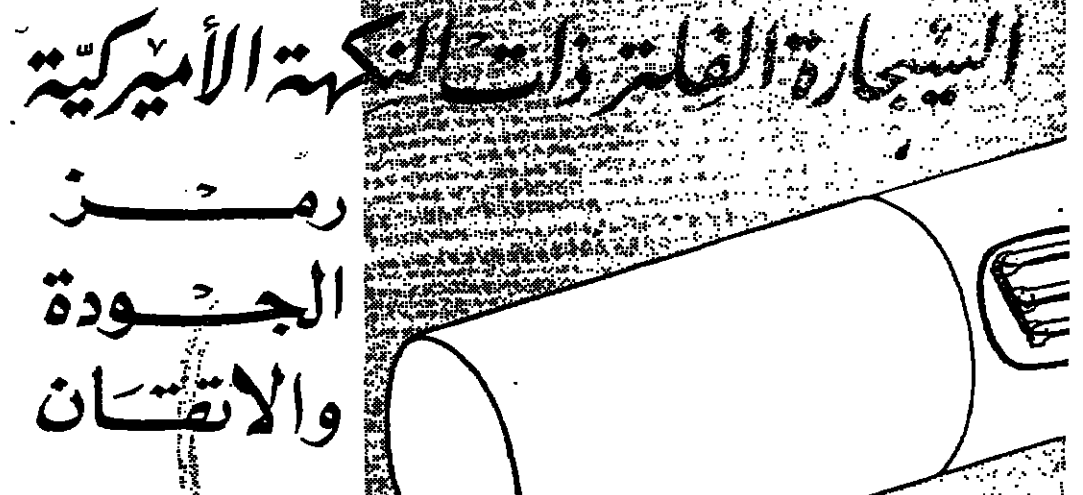 السيجارة الفلتر ذات النكهة الأميركيّة
رمز
الجودة
والاتقان